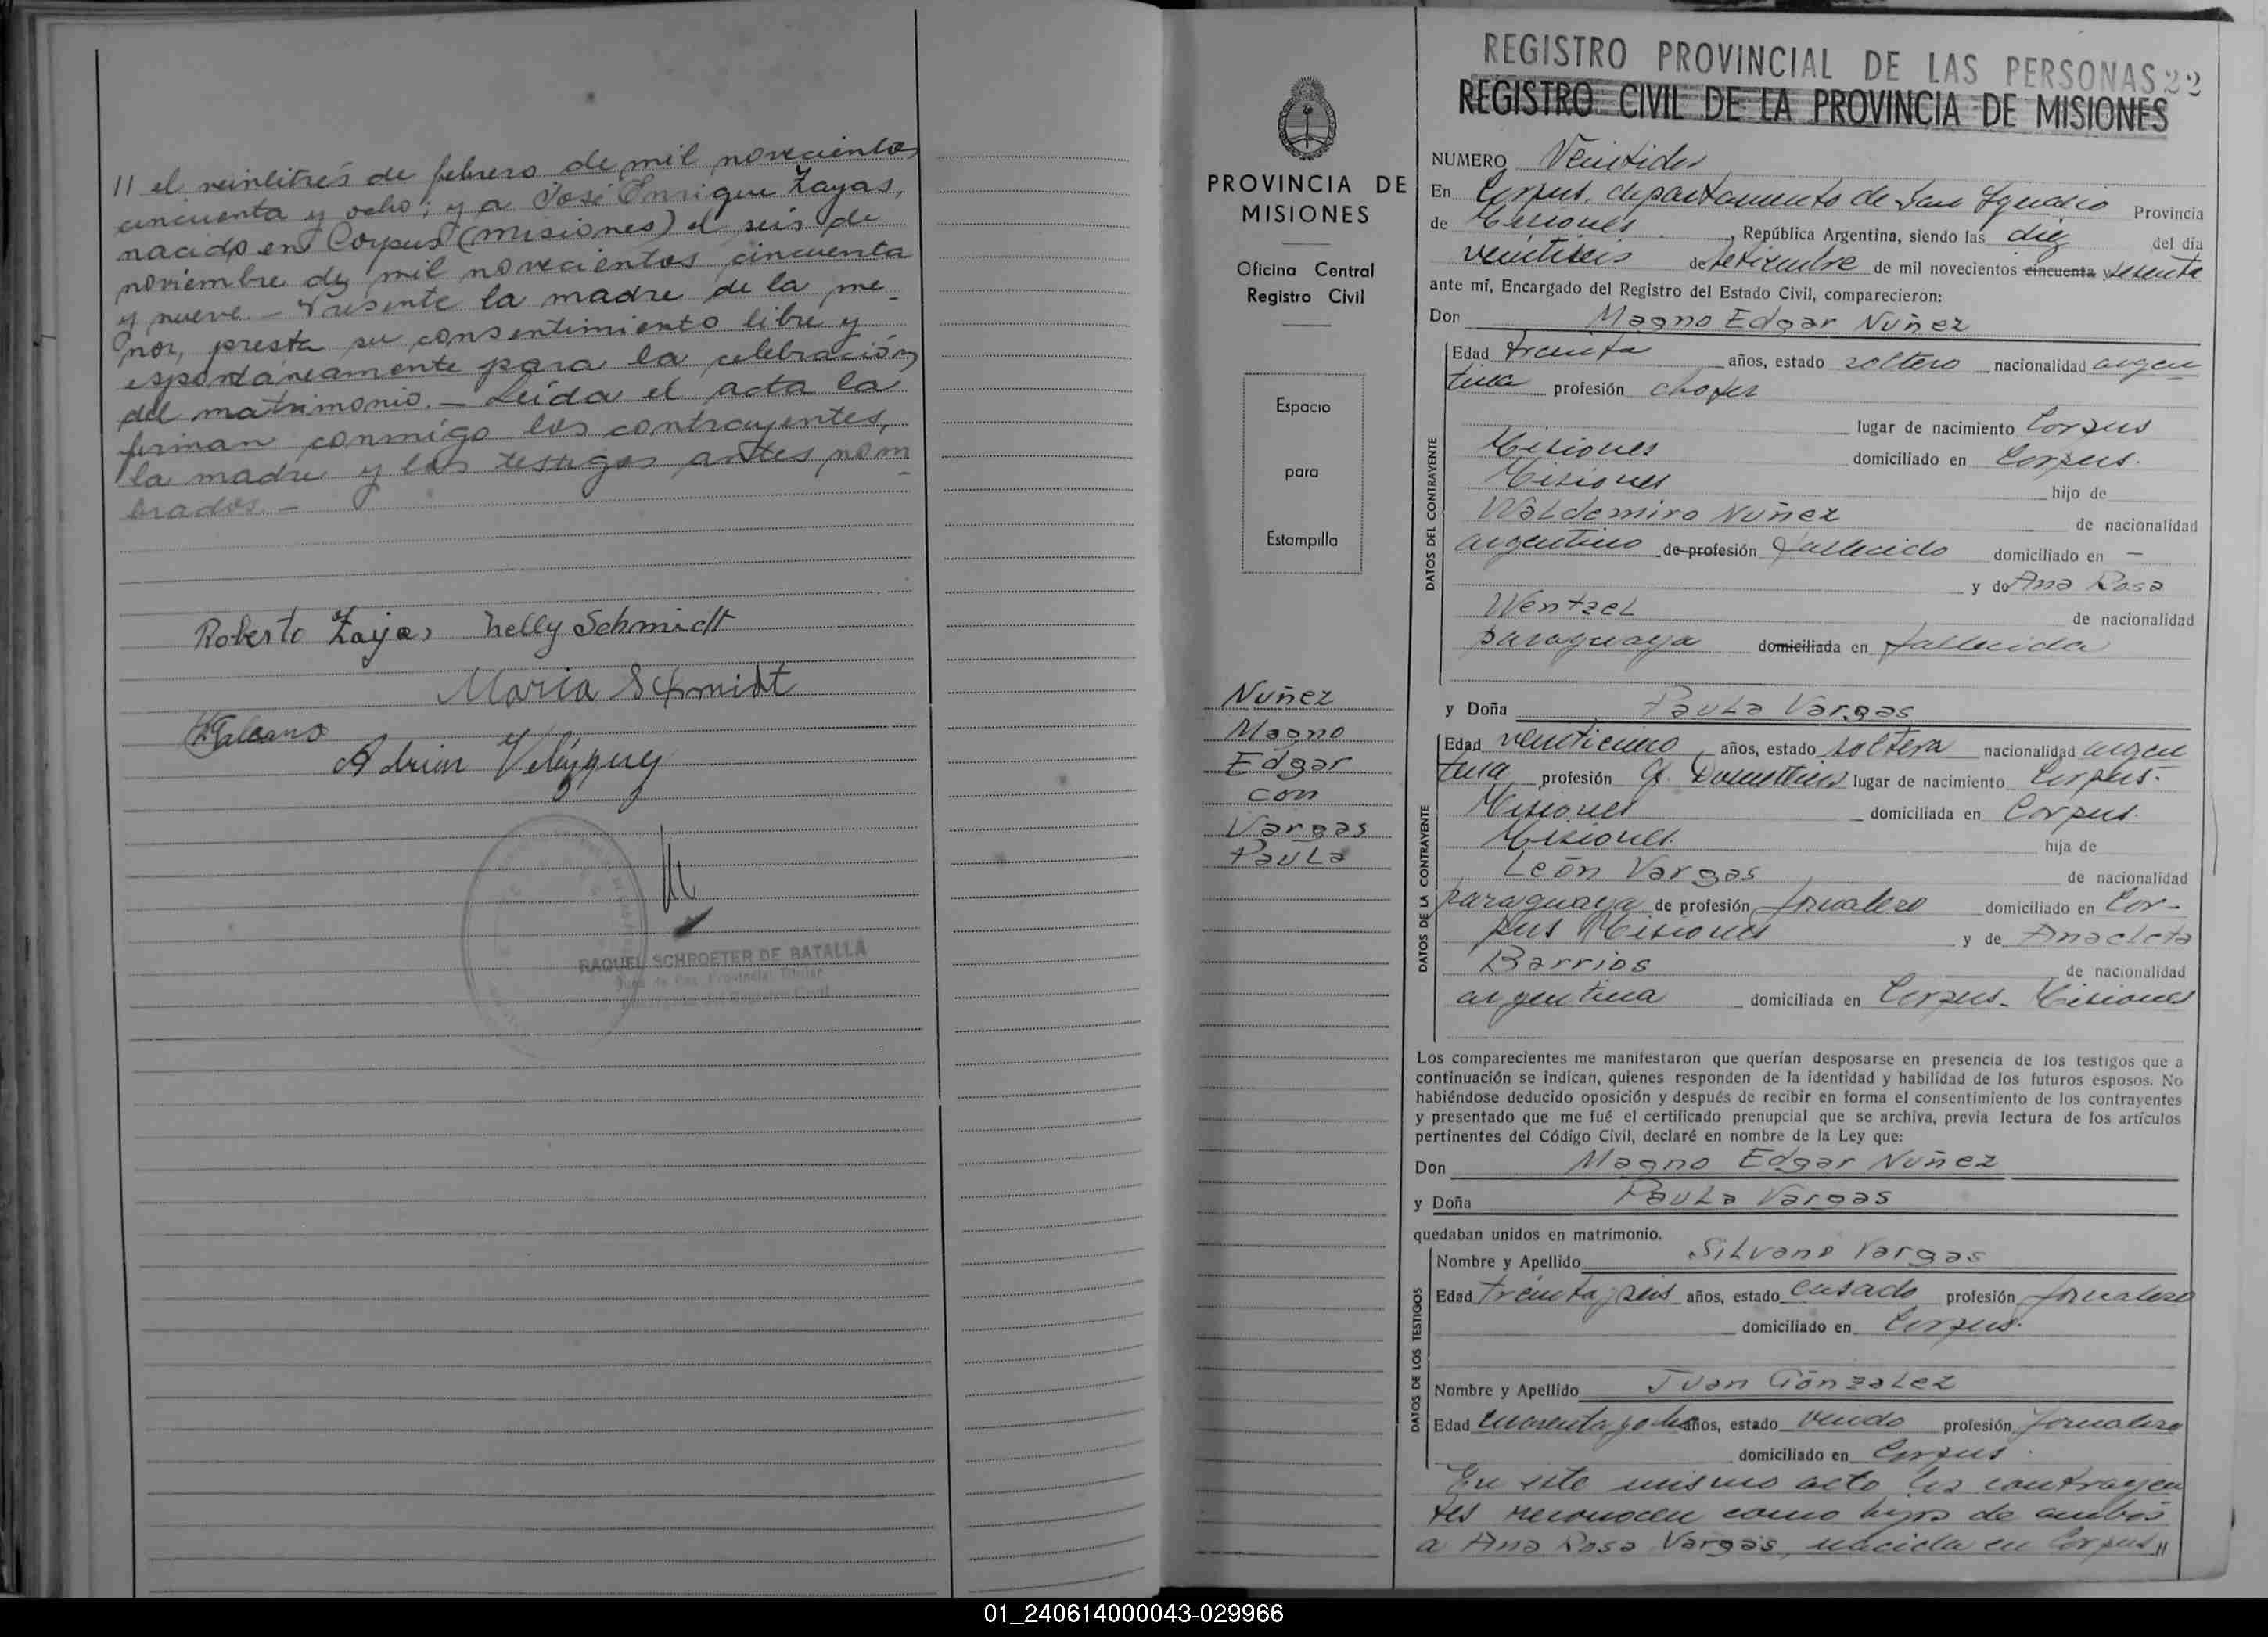 11 el veintitrés de febrero de mil novecientos
cincuenta y ocho; y a José Enrique Zayas,
nacido en Corpus (Misiones) el seis de
noviembre de mil novecientos cincuenta
y nueve.- Presente la madre de la me-
nor, presta su consentimiento libre y
espontáneamente para la celebración
del matrimonio.- Leída el acta la
firman conmigo los contrayentes,
la madre y los testigos antes nom
brados.-
Roberto Zayas Nelly Schmidt
Maria Schmidt
Adrian Velázquez
RAQUEL SCHROETER DE BATALLA
PROVINCIA DE
MISIONES
Oficina Central
Registro Civil
Espacio
para
Estampilla
Nuñez
Magno
Edgar
con
Vargas
Paula
REGISTRO PROVINCIAL DE LAS PERSONAS 22
REGISTRO CIVIL DE LA PROVINCIA DE MISIONES
NUMERO Veintidos
En Corpus, departamento de San Ignacio Provincia
de Misiones, República Argentina, siendo las diez del día
veintiseis de setiembre de mil novecientos cincuenta sesenta
ante mí, Encargado del Registro del Estado Civil, comparecieron:
Don Magno Edgar Nuñez
Edad treinta años, estado soltero nacionalidad argen
tina profesión chofer
lugar de nacimiento Corpus
Misiones domiciliado en Corpus.
Misiones hijo de
Waldemiro Nuñez de nacionalidad
argentino de profesión fallecido domiciliado en —
y de Ana Rosa
Wentzel de nacionalidad
paraguaya domiciliada en fallecida
DATOS DEL CONTRAYENTE
y Doña Paula Vargas
Edad veinticinco años, estado soltera nacionalidad argen
tina profesión Q. Domésticos lugar de nacimiento Corpus.
Misiones domiciliada en Corpus.
Misiones. hija de
León Vargas de nacionalidad
paraguaya de profesión jornalero domiciliado en Cor-
pus Misiones y de Anacleta
Barrios de nacionalidad
argentina domiciliada en Corpus- Misiones
DATOS DE LA CONTRAYENTE
Los comparecientes me manifestaron que querían desposarse en presencia de los testigos que a
continuación se indican, quienes responden de la identidad y habilidad de los futuros esposos. No
habiéndose deducido oposición y después de recibir en forma el consentimiento de los contrayentes
y presentado que me fué el certificado prenupcial que se archiva, previa lectura de los artículos
pertinentes del Código Civil, declaré en nombre de la Ley que:
Don Magno Edgar Nuñez
y Doña Paula Vargas
quedaban unidos en matrimonio.
Nombre y Apellido Silvano Vargas
Edad treinta y seis años, estado casado profesión jornalero
domiciliado en Corpus.
Nombre y Apellido Juan Gónzalez
Edad cuarenta y ocho años, estado viudo profesión jornalero
domiciliado en Corpus.
DATOS DE LOS TESTIGOS
En este mismo acto los contrayen
tes reconocen como hijos de ambos
a Ana Rosa Vargas, nacida en Corpus 11
01_240614000043-029966